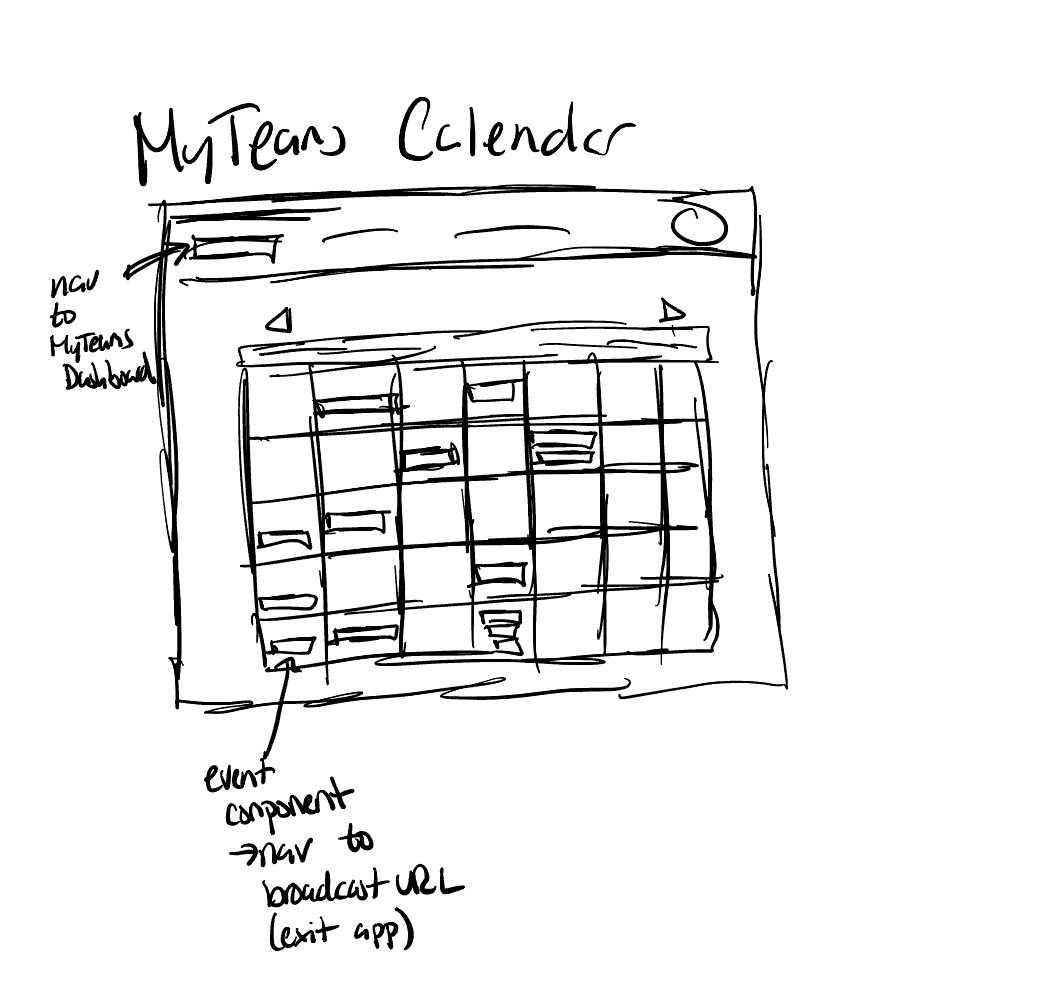 MyTeams Calendar
nav
to
MyTeams
Dashboard
event
component
→nav to
broadcast URL
(exit app)